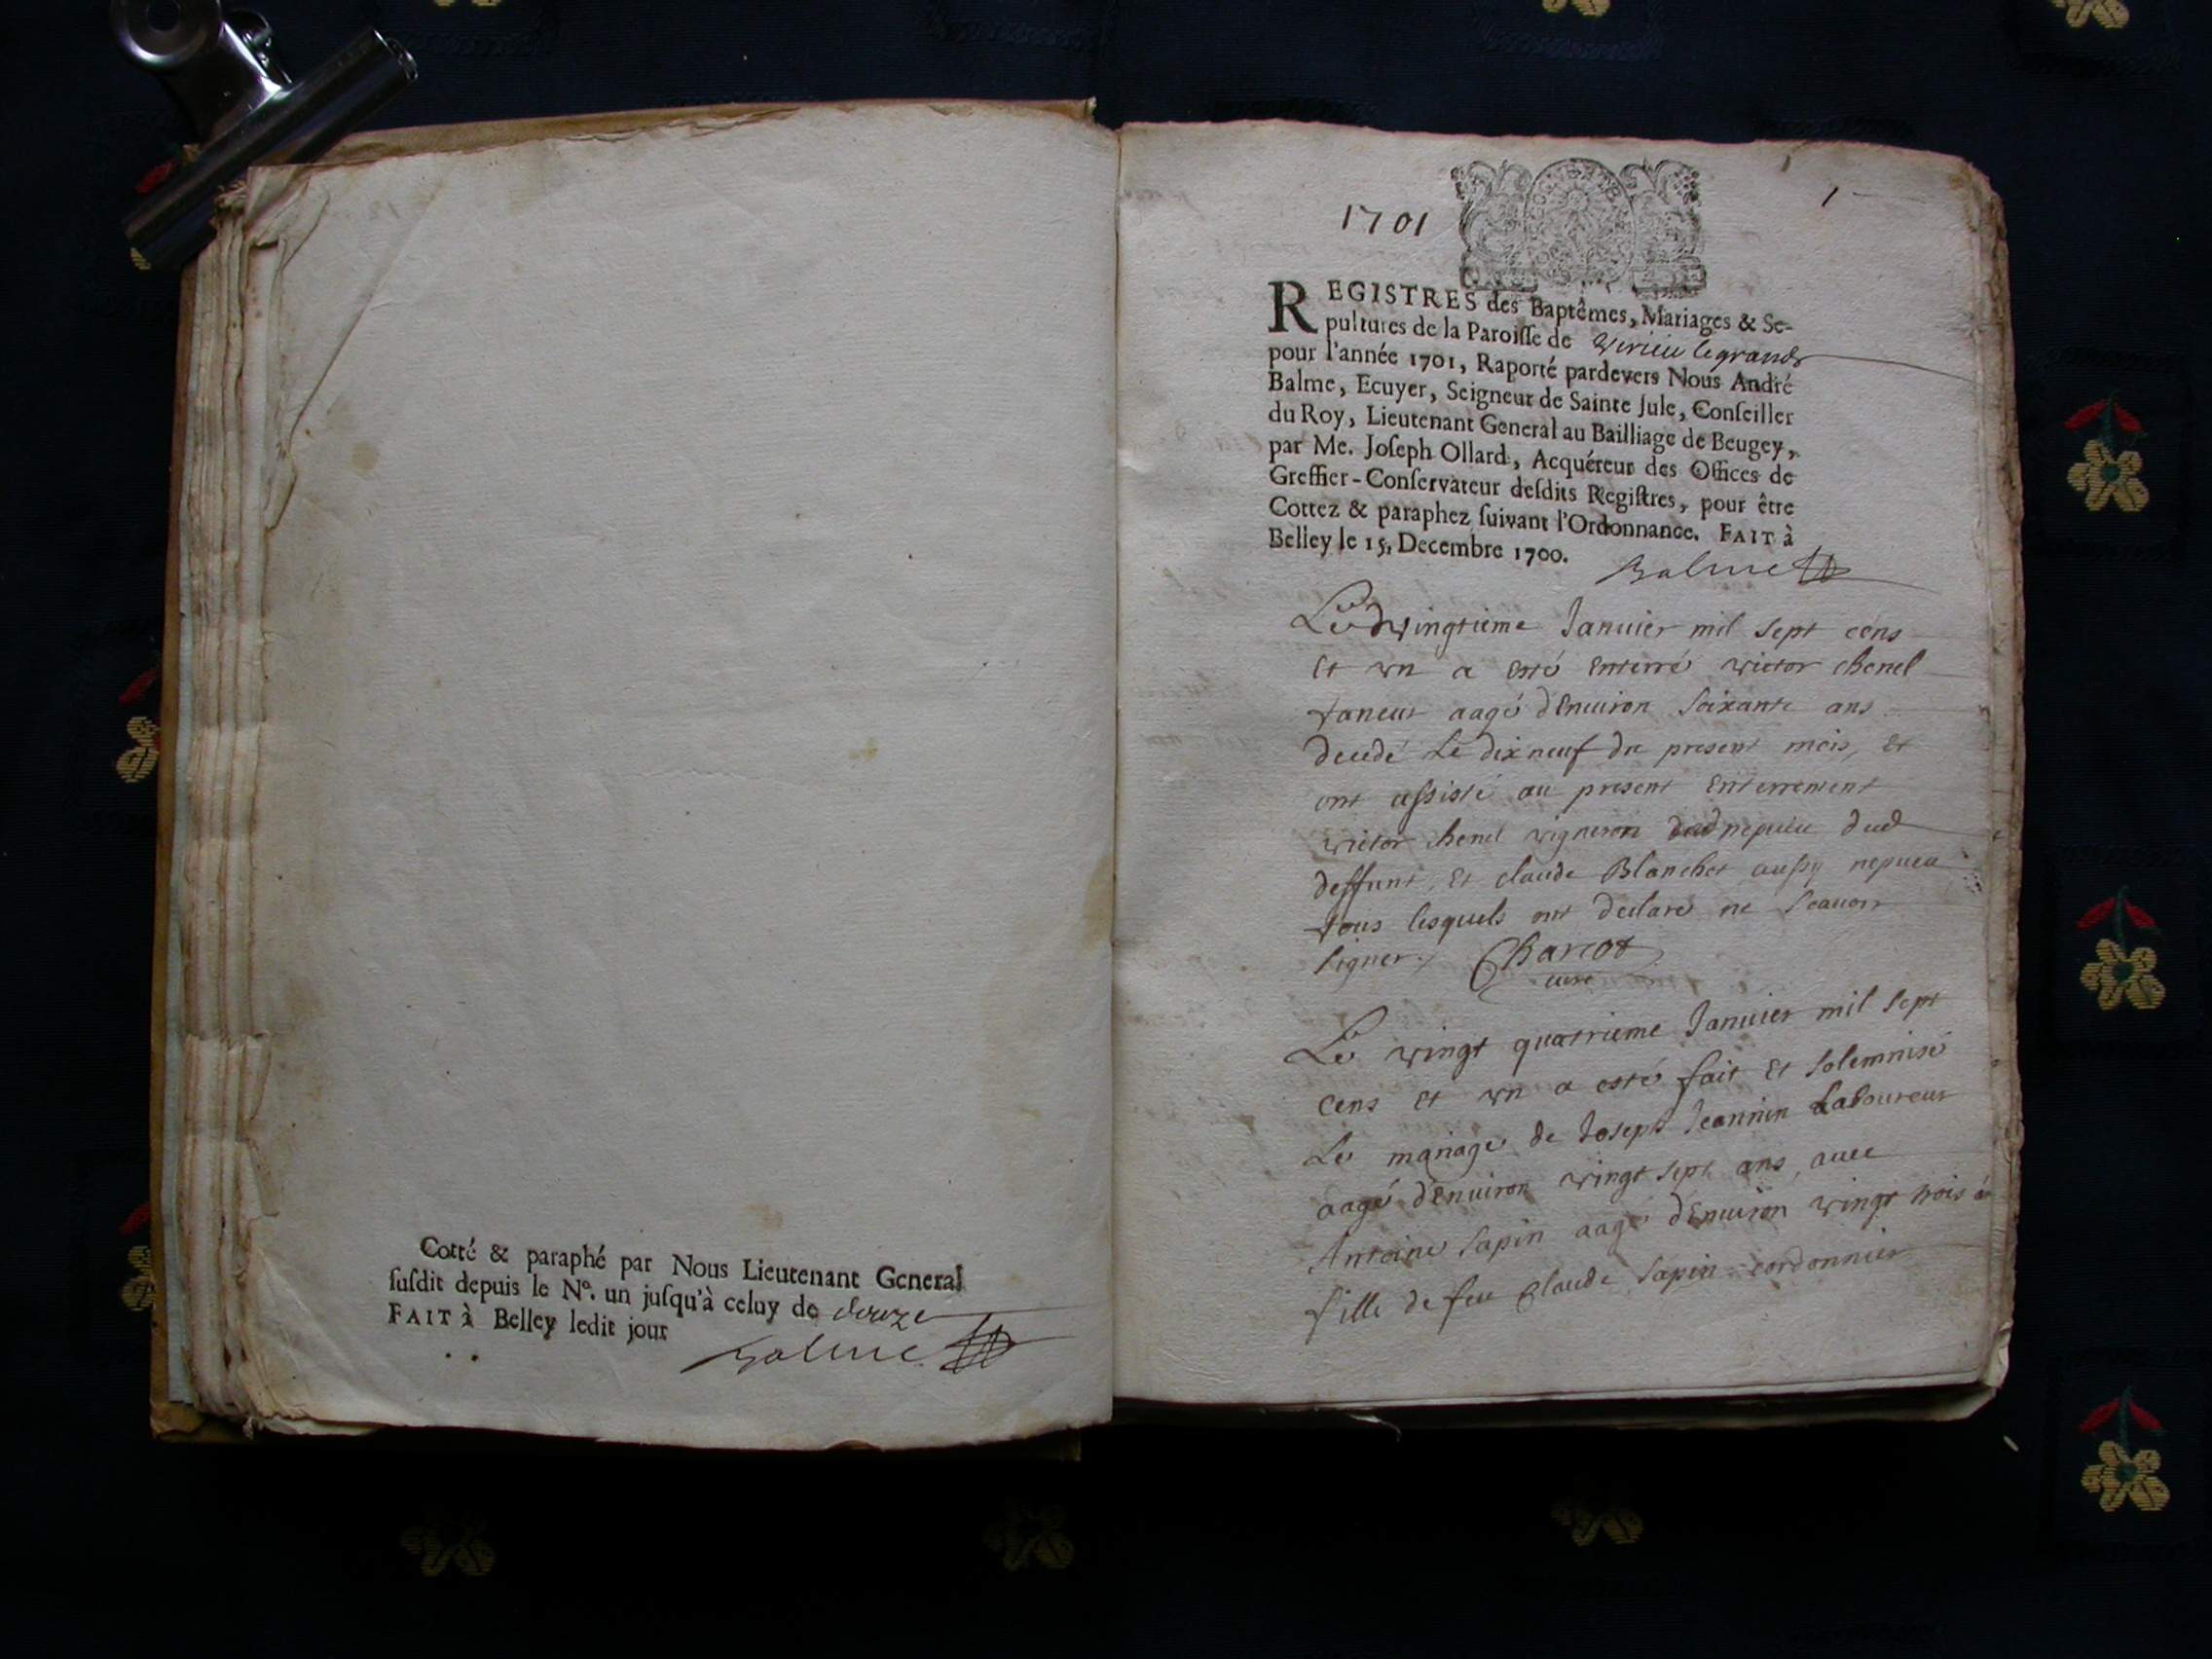 Cotté & paraphé par Nous Lieutenant General
ſuſdit depuis le Nº. un juſqu'à celuy de douze
FAIT à Belley ledit jour
Balme
1701
1
REGISTRES des Baptêmes, Mariages & Se-
pultures de la Paroiſſe de Virieu legrand
pour l'année 1701, Raporté pardevers Nous André
Balme, Ecuyer, Seigneur de Sainte Jule, Conſeiller
du Roy, Lieutenant General au Bailliage de Beugey,
par Me. Joſeph Ollard, Acquéreur des Offices de
Greffier-Conſervateur deſdits Regiſtres, pour être
Cottez & paraphez ſuivant l'Ordonnance. FAIT à
Belley le 15, Decembre 1700.
Balme
Le vingtieme Januier mil sept cens
Et vn a esté Enterré victor chenel
aagé d'Enuiron soixante ans
decedé Le dixneuf du present mois, Et
ont assisté au present Enterrement
victor chenel vigneron nepueu dud
deffunt, Et claude Blanchet aussy nepueu
tous lesquels ont declaré ne scauoir
signer./ Charcot
curé
Le vingt quatrieme Januier mil sept
cens et vn a esté fait Et solemnisé
Le mariage de Joseph Jeannin Laboureur
aagé d'Enuiron vingt sept ans, auec
Antoine Sapin aagé d'Enuiron vingt trois
fille de feu Claude Sapin cordonnier